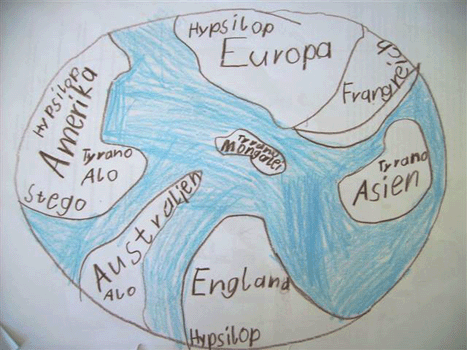 Hypsilop
Europa
Frangreich
Hypsilop
Amerika
Tyrano
Alo
Stego
Tyrano
Mongolei
Tyrano
Asien
Australien
Alo
England
Hypsilop